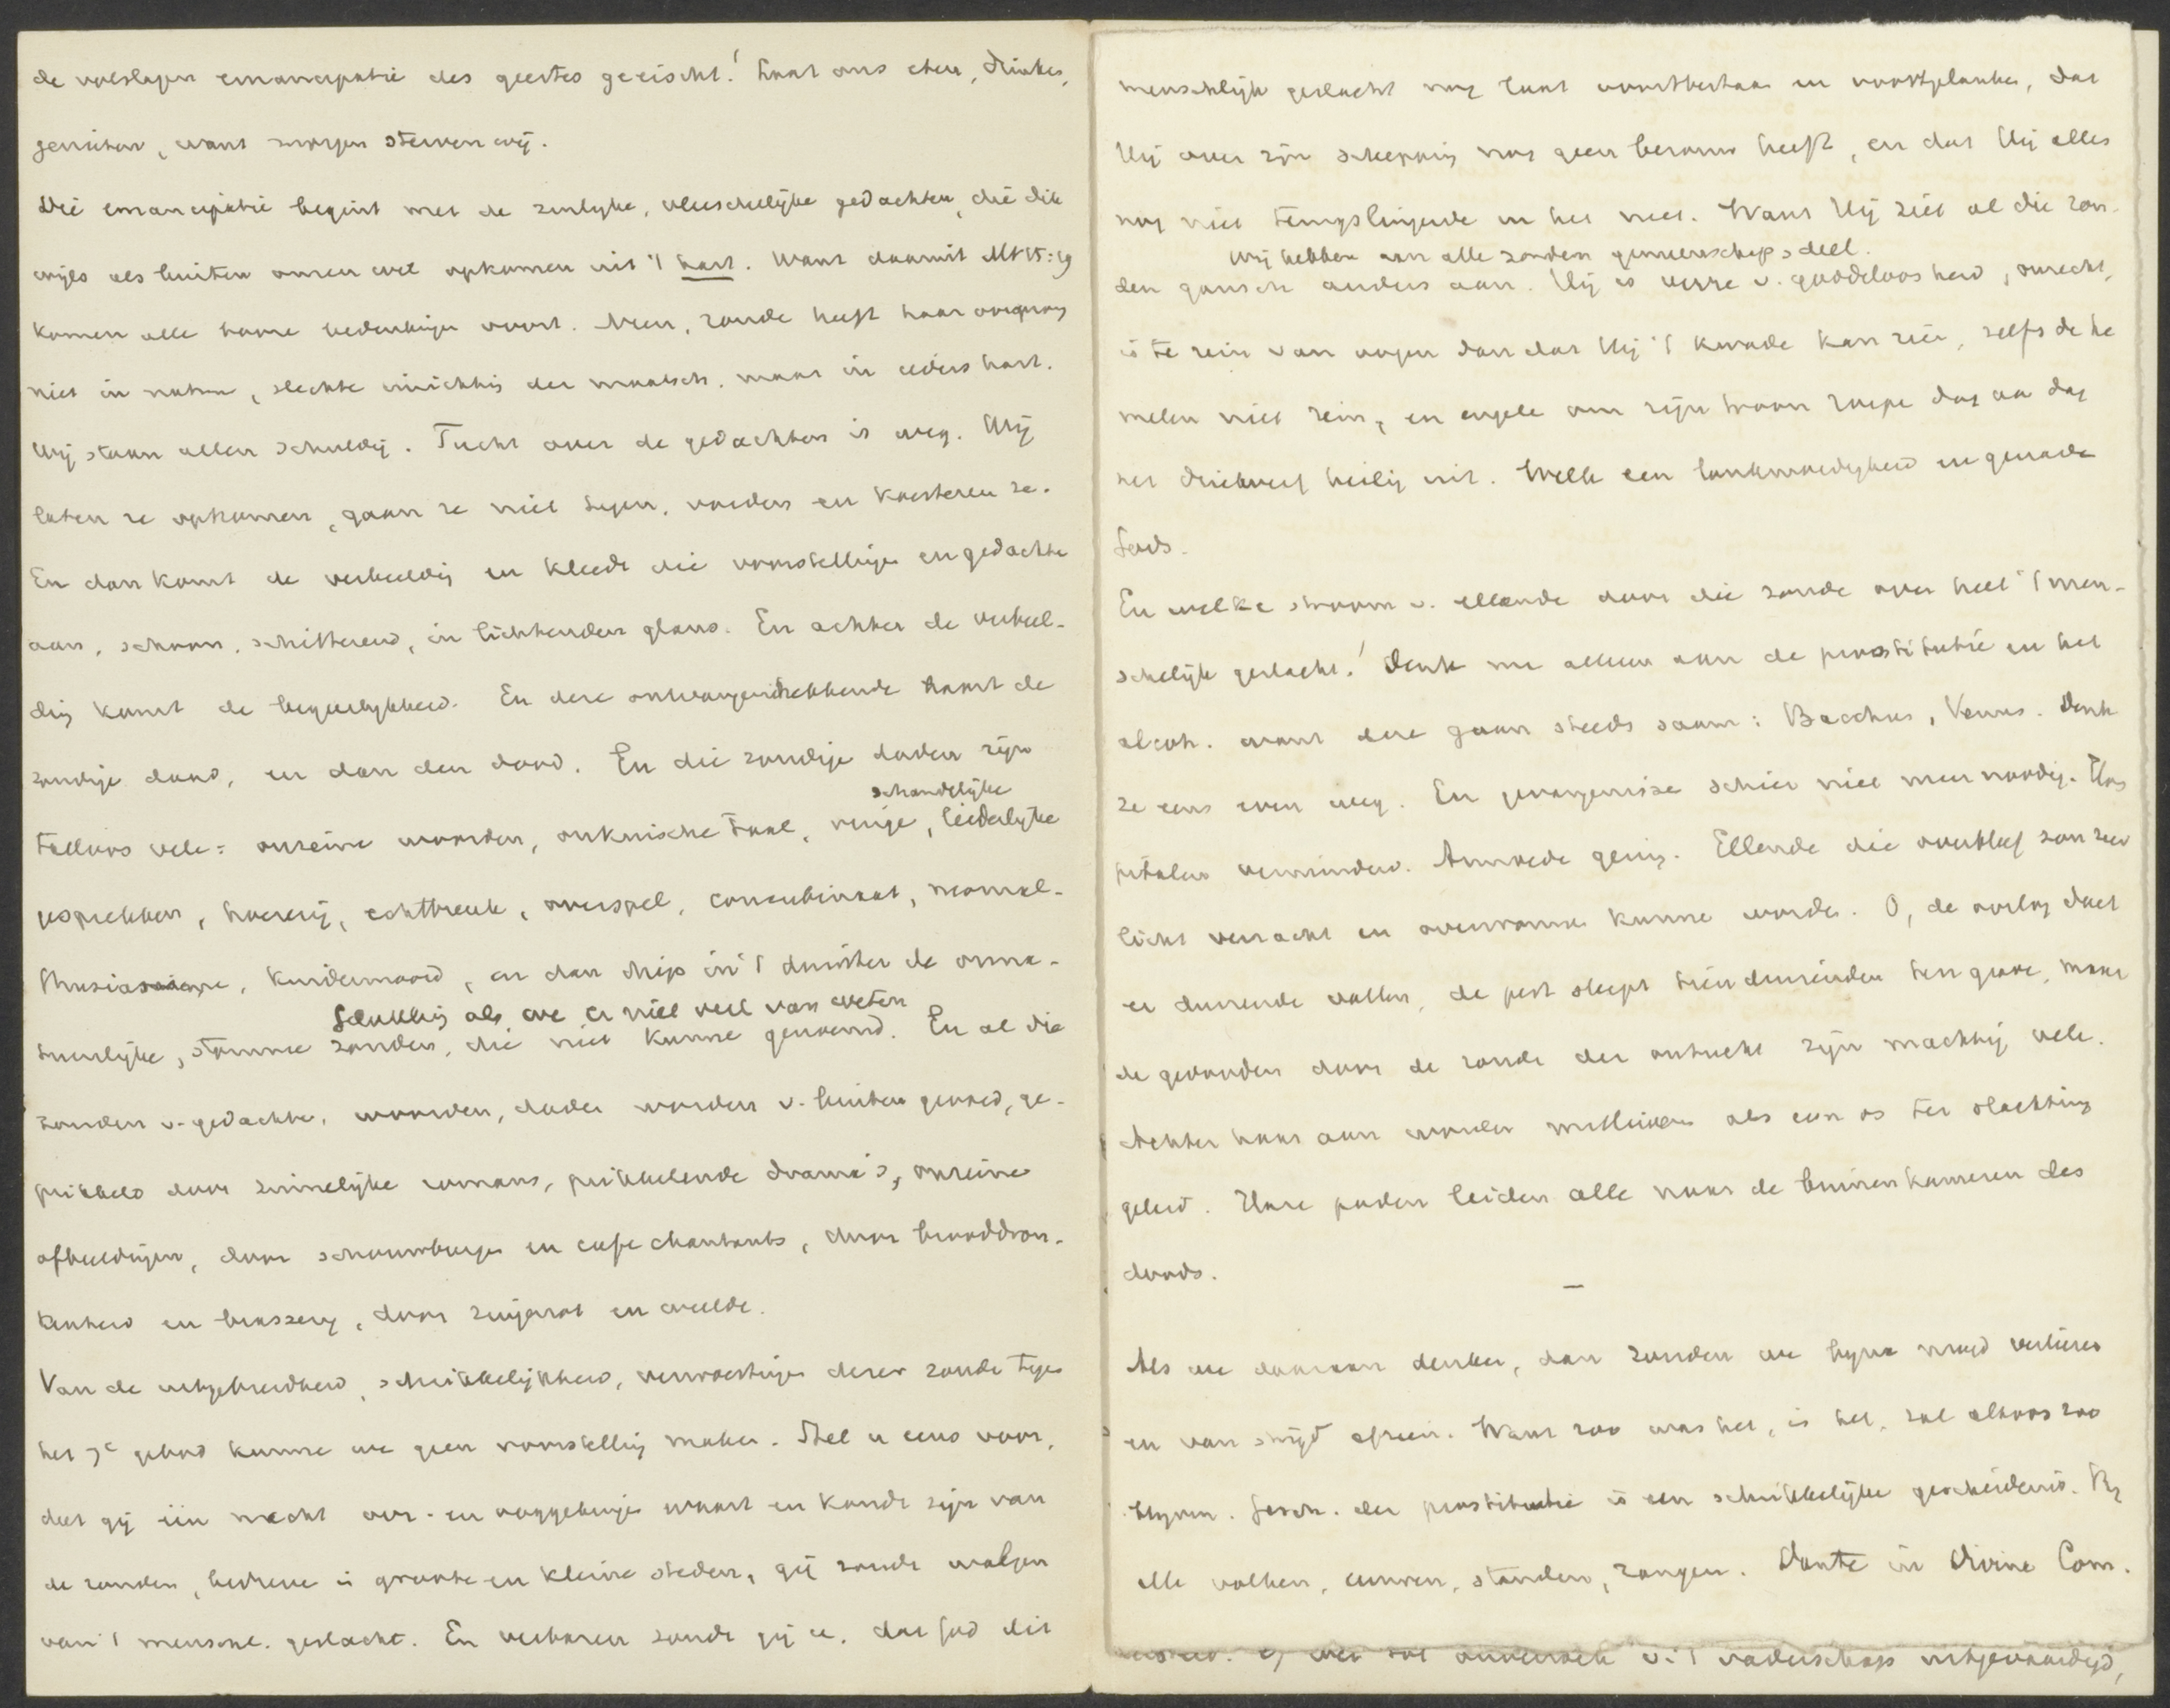 de volslagen emancipatie des geestes geëischt! Laat ons eten, drinken,
genieten, want morgen sterven wij.
Die emancipatie begint met de zinlijke, vleeschelijke gedachten, die dik
wijls als buiten onzen wil opkomen uit 't hart. Want daaruit Mt 15:19
komen alle booze bedenkingen voort. Neen, zonde heeft haar oorsprong
niet in natuur, slechte inrichting der maatsch. maar in ieders hart.
Wij staan allen schuldig. Tucht over de gedachten is weg. Wij
laten ze opkomen, gaan ze niet tegen, voeden en koesteren ze.
En dan komt de verbeeldg en kleedt die voorstellingen en gedachte
aan, schoon, schitterend, in lichtenden glans. En achter de verbeel-
dig komt de begeerlijkheid. En deze ontvangen hebbende baart de
zondige daad, en dan den dood. En die zondige daden zijn
schandelijke
talloos vele: onreine woorden, onkuische taal, vuige, liederlijke
gesprekken, hoererij, echtbreuk, overspel, concubinaat, neomal-
thusianisme, kindermoord, en dan diep in 't duister de onna-
Gelukkig als we er niet veel van weten
tuurlijke, stomme zonden, die niet kunne genoemd. En al die
zonden v. gedachte, woorden, daden worden v. buiten gevoed, ge-
prikkeld door zinnelijke romans, prikkelende drama's, onreine
afbeeldingen, door schouwburgen en café chantants, door brooddron-
kenheid en brasserij, door zingenot en weelde.
Van de uitgebreidheid, schrikkelijkheid, verwoestingen dezer zonde tegen
het 7e gebod kunne we geen voorstelling maken. Stel u eens voor,
dat gij één nacht oor- en ooggetuige waart en konde zijn van
de zonden, bedreven in groote en kleine steden, gij zoudt walgen
van 't menschel. geslacht. En verbazen zoudt gij u, dat God dit
menschlijk geslacht nog laat voortbestaan en voortplanten, dat
Hij over zijn schepping nog geen berouw heeft, en dat Hij alles
nog niet terugslingerde in het niet. Want Hij ziet al die zon-
Wij hebben aan alle zonden gemeenschap, deel.
den gansch anders aan. Hij is verre v. goddeloosheid, onrecht,
is te rein van oogen dan dat Hij 't kwade kan zien, zelfs de he
melen niet rein, en engelen om zijn troon roepe dag aan dag
het driewerf heilig uit. Welk een lankmoedigheid en genade
Gods.
En welke stroom v. ellende door die zonde over heel 't men-
schelijk geslacht! Denk nu alleen aan de prostitutie en het
alcoh. want deze gaan steeds saam: Bacchus, Venus. Denk
ze eens even weg. En gevangenisse schier niet meer noodig. Hos
pitalen verminderd. Armoede gering. Ellende die overbleef zou zeer
licht verzacht en overwonne kunne worden. O, de oorlog doet
er duizende vallen, de pest sleept tienduizenden ten grave, maar
de gewonden door de zonde der ontucht zijn machtig vele.
Achter haar aan worden millioenen als een os ter slachting
geleid. Hare paden leiden alle naar de binnenkameren des
doods.
—
Als we daaraan denken, dan zouden we bijna moed verliezen
en van strijd afzien. Want zoo was het, is het, zal altoos zoo
blijven. Gesch. der prostitutie is een schrikkelijke geschiedenis. Bij
alle volken, eeuwen, standen, rangen. Dante in Divina Com.
v. 't vaderschap uitgevaardigd,